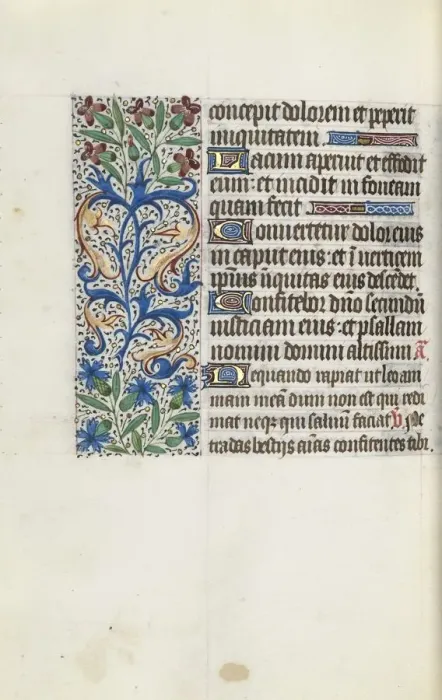 concepit dolorem et peperit
iniquitatem.
Lacum aperuit et effodit
eum: et incidit in foueam
quam fecit
Conuertetur dolor eius
in caput eius: et ī uerticem
ipsius iniquitas eius descēdet.
Confitebor dn̄o secundū
iusticiam eius: et psallam
nomini domini altissimi A͞.
Nequando rapiat ut leo am̄
mam meā dum non est qui redi
mat neqȝ qui saluū faciat V̄. Ne
tradas bestijs aīas confitentes tibi.